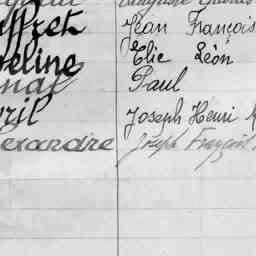 uffret Jean François
veline Elie Léon
Paul
ril Joseph Henri
exandre Joseph François